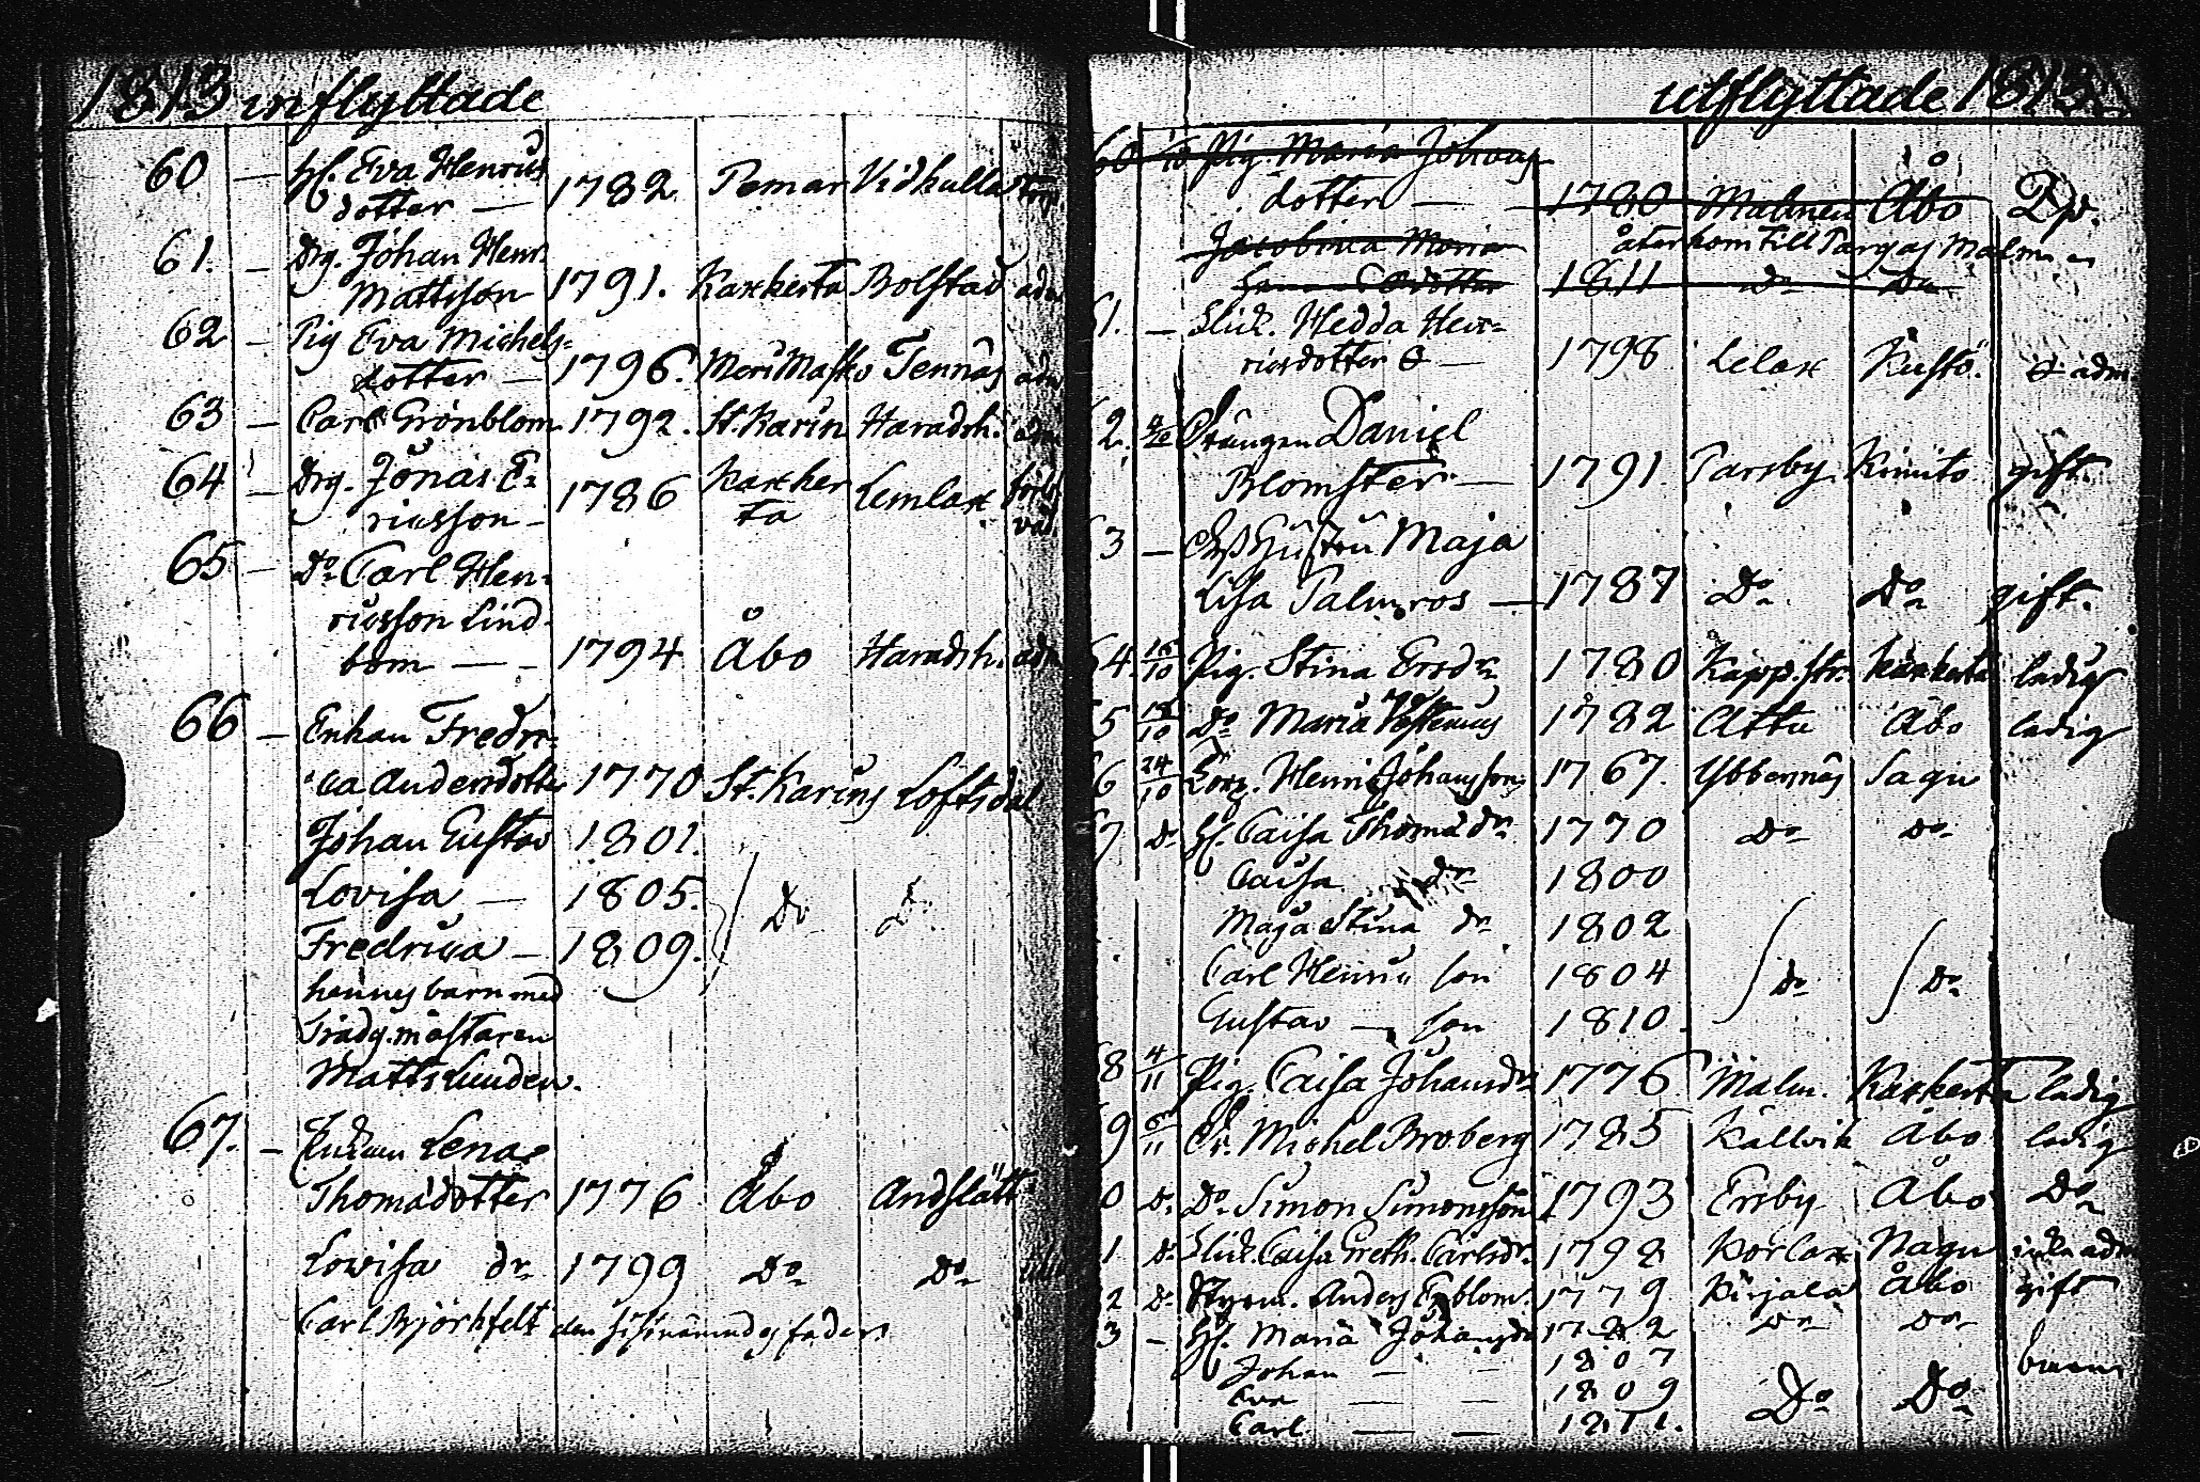 1813 inflyttade
60 — H. Eva Henrics
dotter — 1782 Pemar Vidkulla torp
61. — Drg. Johan Henr.
Mattsson 1791. Karkerta Bolstad adm
62 — Pig Eva Michels-
dotter — 1796. MeriMasko Tennäs adm
63 — Carl Grönblom 1792. St. Karin Haradsh. adm
64 — Drg. Jonas E-
ricsson — 1786 Karker
ta Lemlax
65 — Do Carl Hen-
ricsson Lind-
bom — - 1794 Åbo Haradsh. adm
66 — Enkan Fredri-
ca Andersdotter 1770 St. Karins Loftsdal
Johan Gustav 1801.
Lovisa — 1805. Do Do
Fredrica — 1809.
hennes barn med
Trädg.mästaren
Matts Lunden.
67. — Enkan Lena
Thomasdotter 1776 Åbo Andslätt
Lowisa dr 1799 Do Do
Carl Björkfelt den sistnämndes fader
utflyttade 1813
60 Pig. Maria Johans
dotter — 1780 Malmen Åbo
Jacobina Maria återkom till Pargas Malm
dotter 1811 Do Do
1. — Flick. Hedda Hen-
ricsdotter — 1798 Lelax Kustö. adm
2. Drängen Daniel
Blomster — 1791 Parsby Kimito gift.
3 — Hustru Maja
Lisa Palmros — 1787 Do Do gift.
4. 16/10 Pig. Stina Ersdr 1780 Kapp.str. Karkerta ledig
5 18/10 Do Maria 1782 Attu Åbo ledig
6 24/10 Torp. Henric Johansson 1767. Ybbernäs Sagu
7 Do H. Caisa Thomadr 1770 Do Do
Caisa dr 1800
Maja Stina dr 1802
Carl Henric son 1804 Do Do
Gustav — son 1810.
8 4/11 Pig. Caisa Johansdr 1776 Malm. Karkerta ledig
9 6/11 Dr. Michel Broberg 1785 Källvik Åbo ledig
0 Do Do Simon Simonsson 1793 Ersby Åbo Do
1 Do Flick. Caisa Greth. Carlsdr. 1798 Norlax Nagu adm
2 Do Styrm. Anders Enblom. 1779 Kirjala Åbo gift
3 — H. Maria Johansdr 1782 Do Do
Johan — — 1807
Eva — — 1809 Do Do
Carl — — 1811.